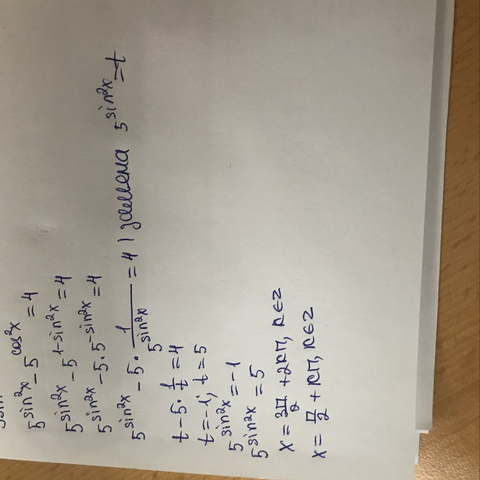 5^{sin²x} - 5^{cos²x} = 4
5^{sin²x} - 5^{1-sin²x} = 4
5^{sin²x} - 5 · 5^{-sin²x} = 4
5^{sin²x} - 5 · \frac{1}{5^{sin²x}} = 4 | замена 5^{sin²x} = t
t - 5 · \frac{1}{t} = 4
t = -1; t = 5
5^{sin²x} = -1
5^{sin²x} = 5
x = \frac{3П}{2} + 2kП, k∈Z
x = \frac{П}{2} + kП, k∈Z